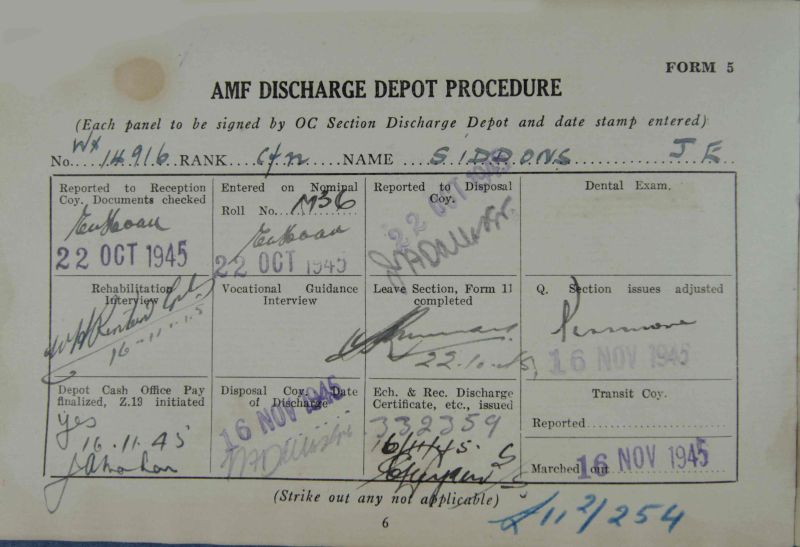 FORM 5
AMF DISCHARGE DEPOT PROCEDURE
(Each panel to be signed by OC Section Discharge Depot and date stamp entered)
No. WX 14916 RANK Cfn NAME SIDDONS J E
Reported to Reception
Coy. Documents checked
22 OCT 1945
Entered on Nominal
Roll No. M36
22 OCT 1945
Reported to Disposal
Coy.
22 OCT 1945
Dental Exam.
Rehabilitation
Interview
16-11-45
Vocational Guidance
Interview
Leave Section, Form 11
completed
22.10.45
Q. Section issues adjusted
16 NOV 1945
Depot Cash Office Pay
finalized, Z.19 initiated
yes
16.11.45
Disposal Coy. Date
of Discharge
16 NOV 1945
Ech. & Rec. Discharge
Certificate, etc., issued
332359
16/11/45.
Transit Coy.
Reported
Marched out 16 NOV 1945
(Strike out any not applicable)
6
112/254